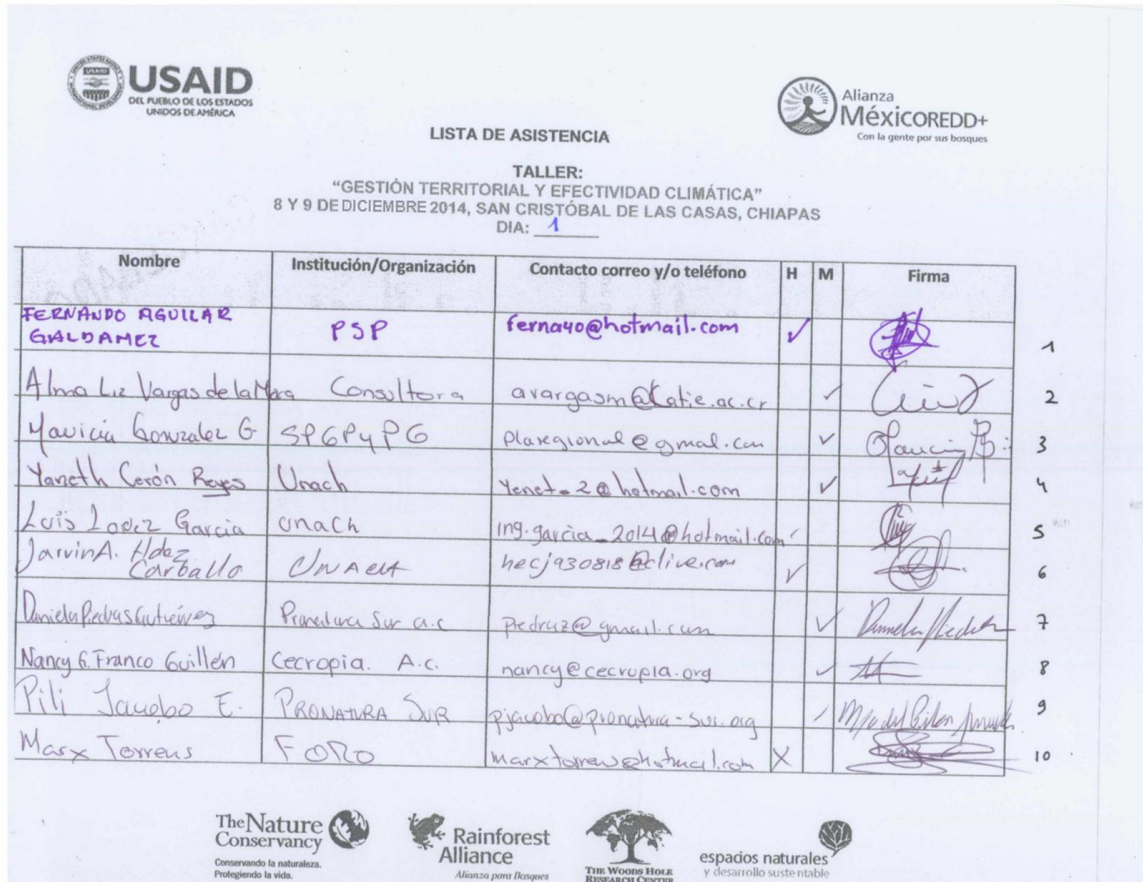 USAID
DEL PUEBLO DE LOS ESTADOS
UNIDOS DE AMÉRICA
Alianza
MéxicoREDD+
Con la gente por sus bosques
LISTA DE ASISTENCIA
TALLER:
"GESTIÓN TERRITORIAL Y EFECTIVIDAD CLIMÁTICA"
8 Y 9 DE DICIEMBRE 2014, SAN CRISTÓBAL DE LAS CASAS, CHIAPAS
DIA: 1
Nombre Institución/Organización Contacto correo y/o teléfono H M Firma
FERNANDO AGUILAR
GALDAMEZ PSP fernayo@hotmail.com ✓ 1
Alma Liz Vargas de la Mora Consultora avargasm@Catie.ac.cr ✓ 2
Mauricia Gonzalez G. SPGPyPG plaregional@gmal.com ✓ 3
Yaneth Cerón Reyes Unach Yenet_2@hotmail.com ✓ 4
Luis Lopez Garcia Unach Ing.garcia_2014@hotmail.com 5
Jarvin A. Hdez
Carballo UNACH hecj930818@live.com ✓ 6
Daniela Piedras Gutiérrez Pronatura Sur a.c ✓ 7
Nancy G. Franco Guillén Cecropia. A.c. nancy@cecropia.org ✓ 8
Pili Jacobo E. PRONATURA SUR pjacobo@pronatura-sur.org ✓ 9
Marx Torrens FORO X 10
The Nature
Conservancy
Conservando la naturaleza.
Protegiendo la vida.
Rainforest
Alliance
Alianza para Bosques
THE WOODS HOLE
RESEARCH CENTER
espacios naturales
y desarrollo sustentable